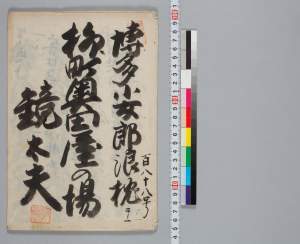 博多小女郎浪枕
百八十八号
柳町奥田屋の場
鏡太夫